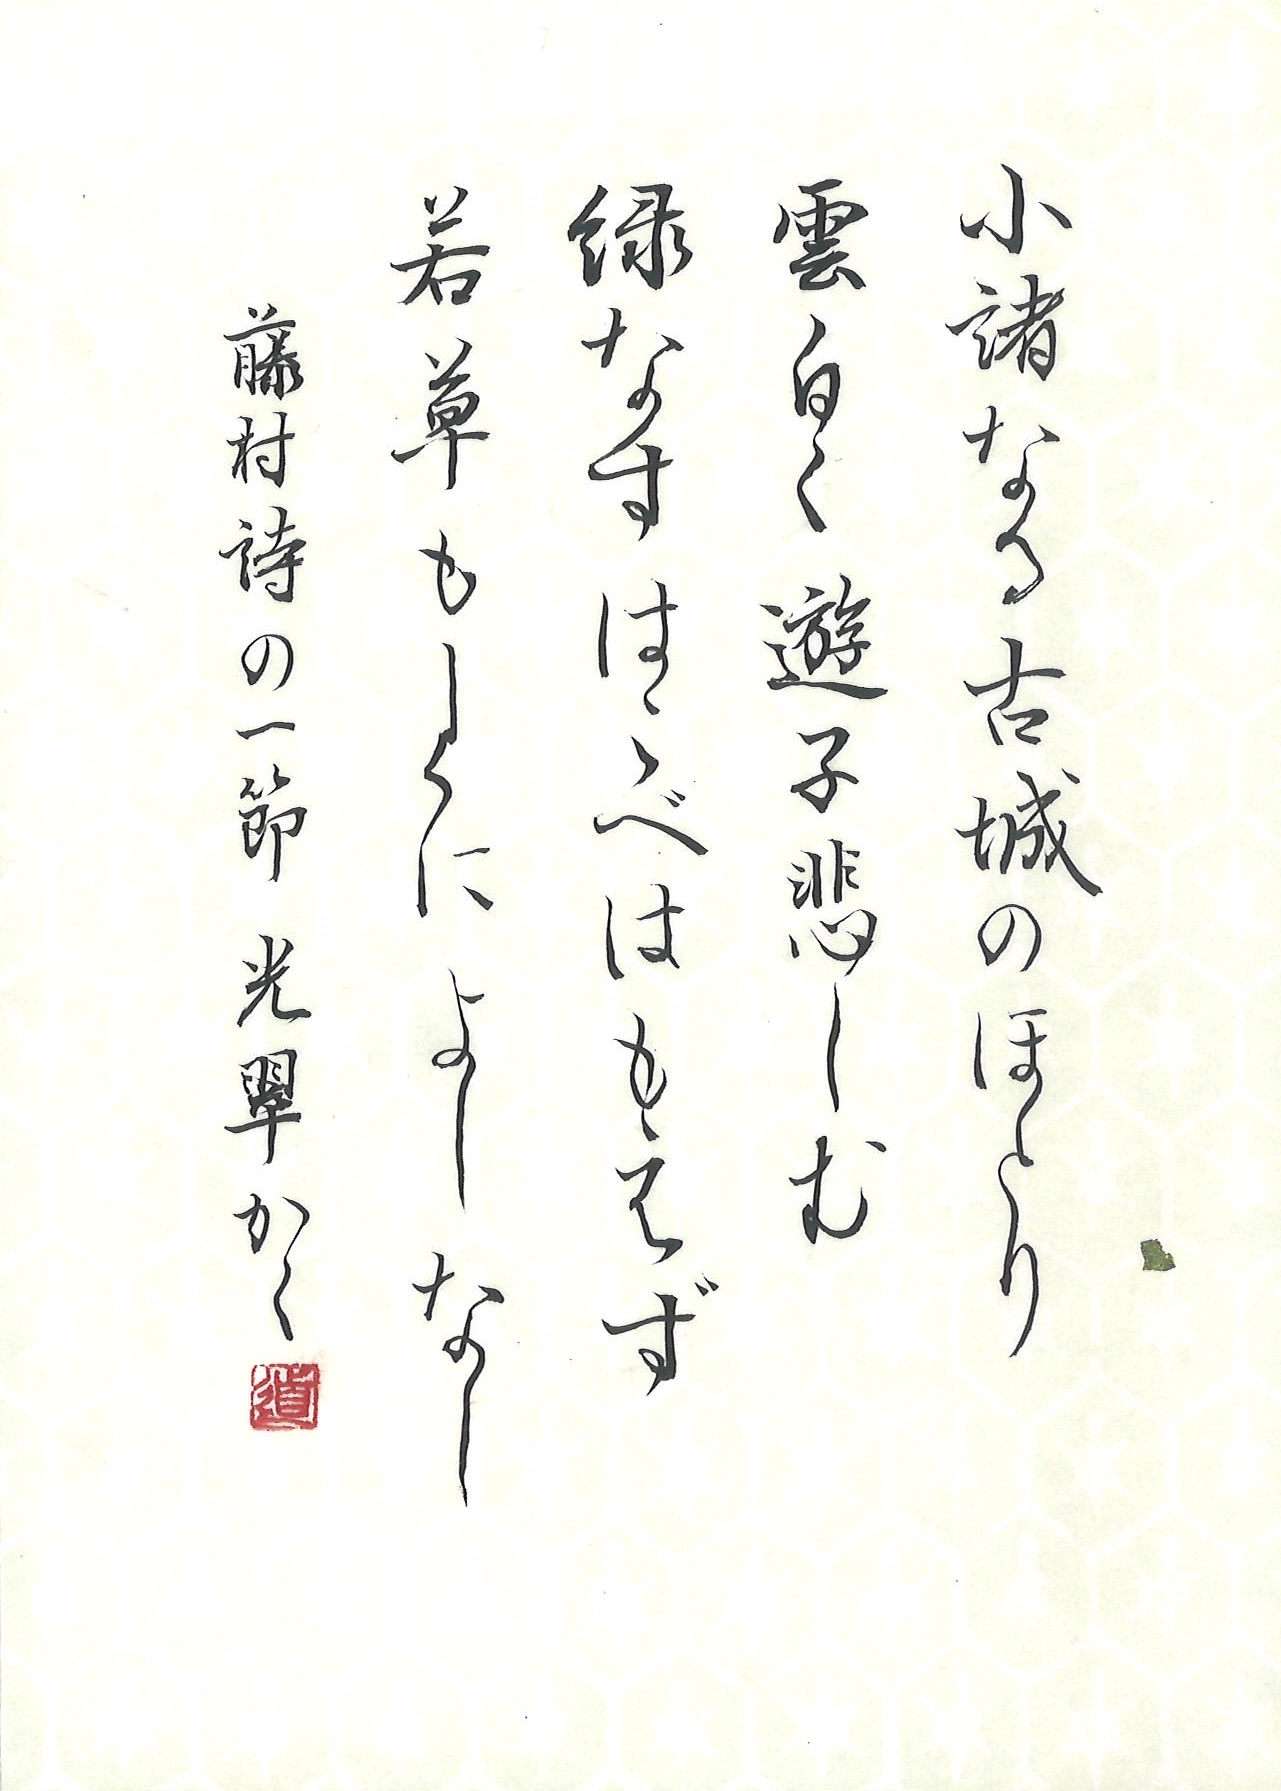 小諸なる古城のほとり
雲白く遊子悲しむ
緑なすはこべはもえず
若草もしくによしなし
藤村詩の一節 光翠かく
道